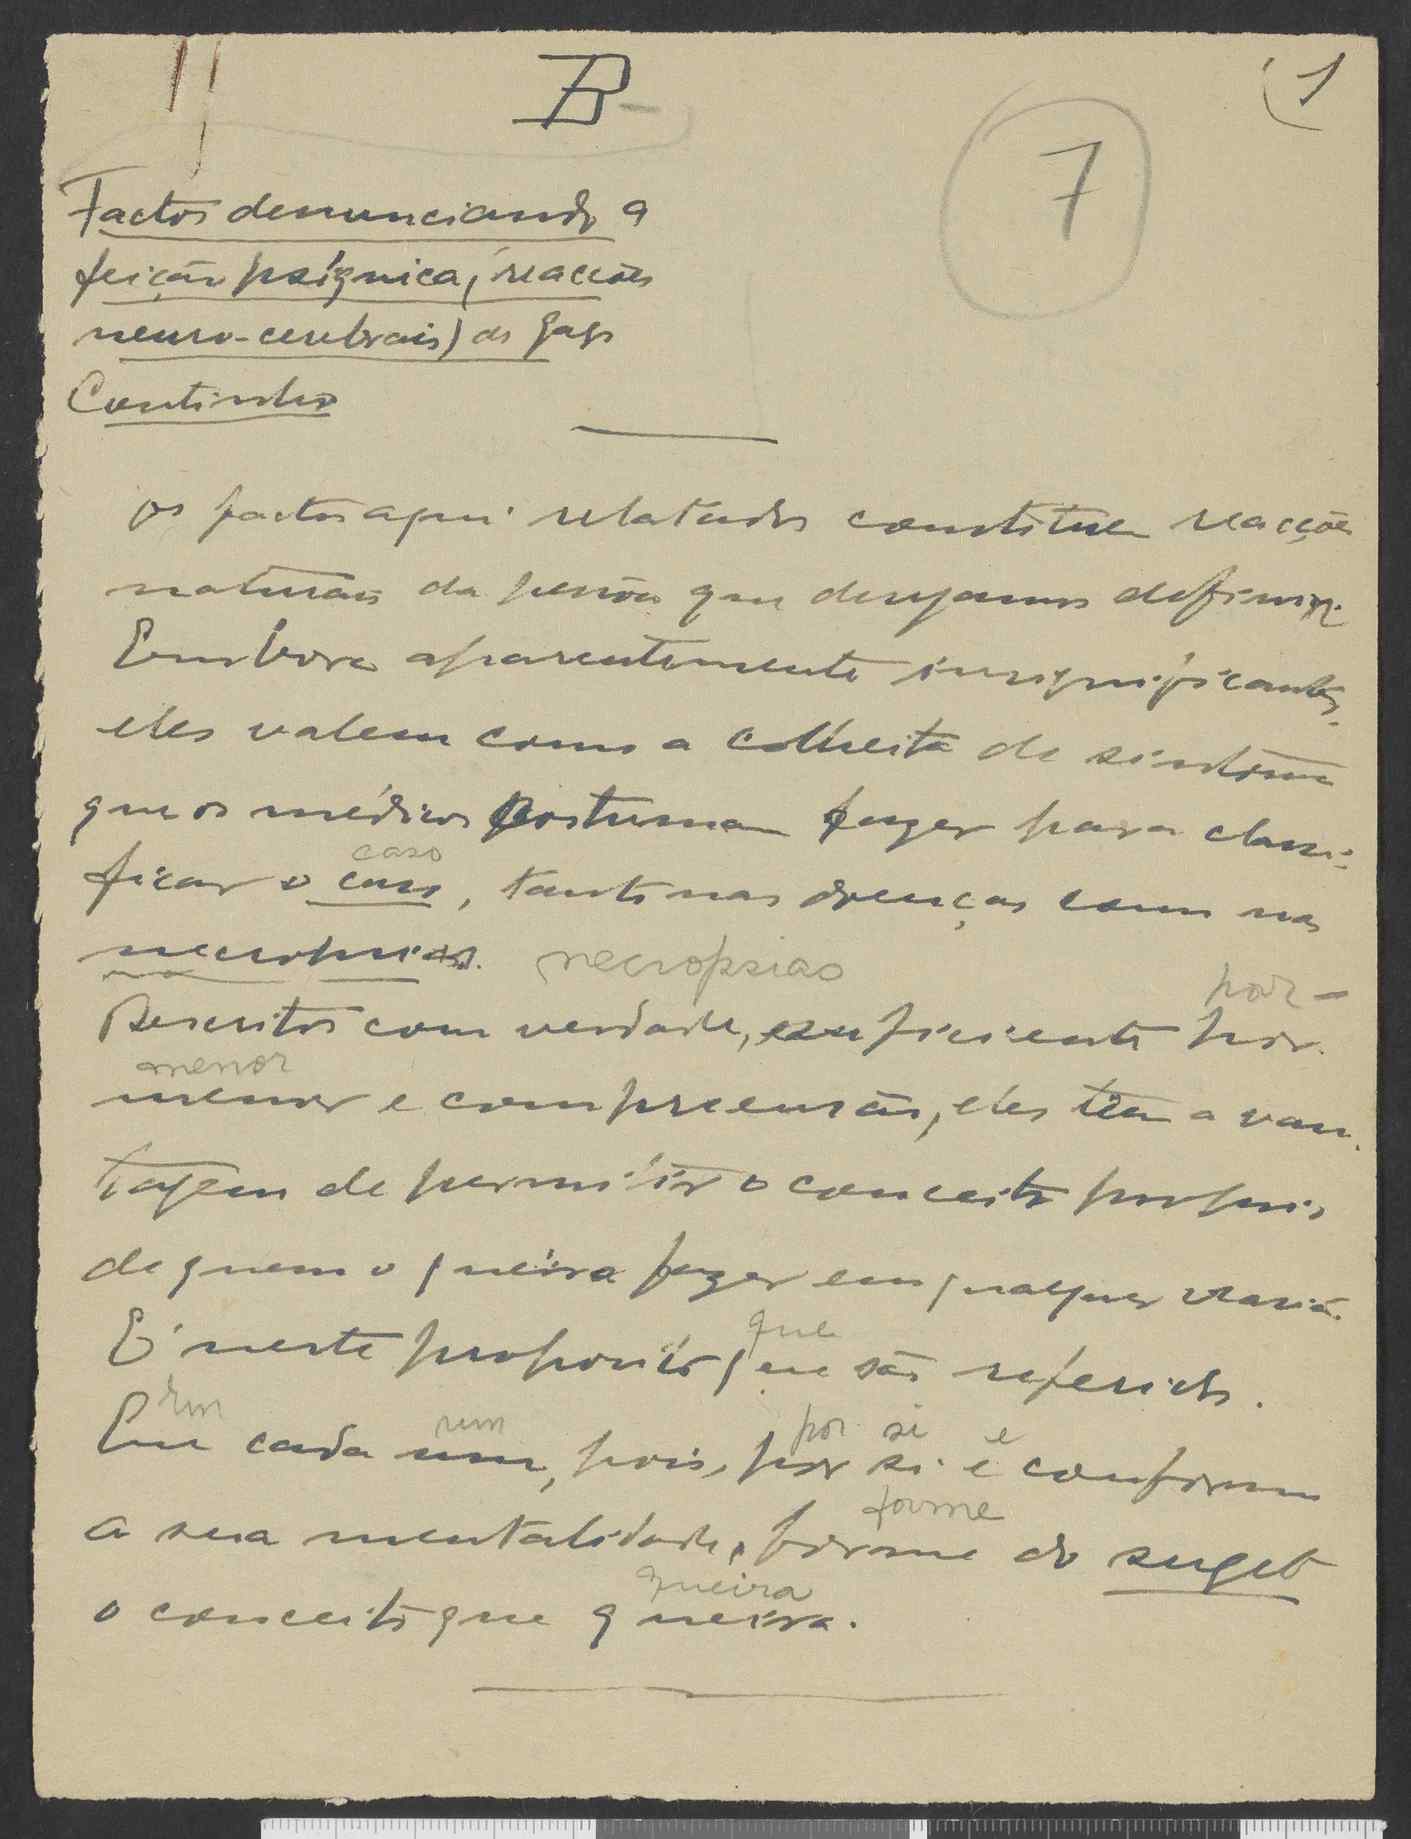 B
(1
7
Factos denunciando a
feição psíquica, (reacções
neuro-cerebrais) de Gago
Coutinho
Os factos aqui relatados constituem reacções
naturais da pessôa que desejamos definir.
Embora aparentemente insignificantes,
eles valem como a colheita de sintomas
que os médicos costumam fazer para classi-
caso
ficar o caso, tanto nas doenças como nas
necropsias. necropsias
por-
Descritos com verdade, suficiente por-
menor
menor e compreensão, eles têm a van-
tagem de permitir o conceito proprio
de quem o queira fazer em qualquer
que
É neste proposito que são referidos.
Em um por si e
Em cada um, pois, por si e conforme
forme
a sua mentalidade, forme do sugeito
queira
o conceito que queira.